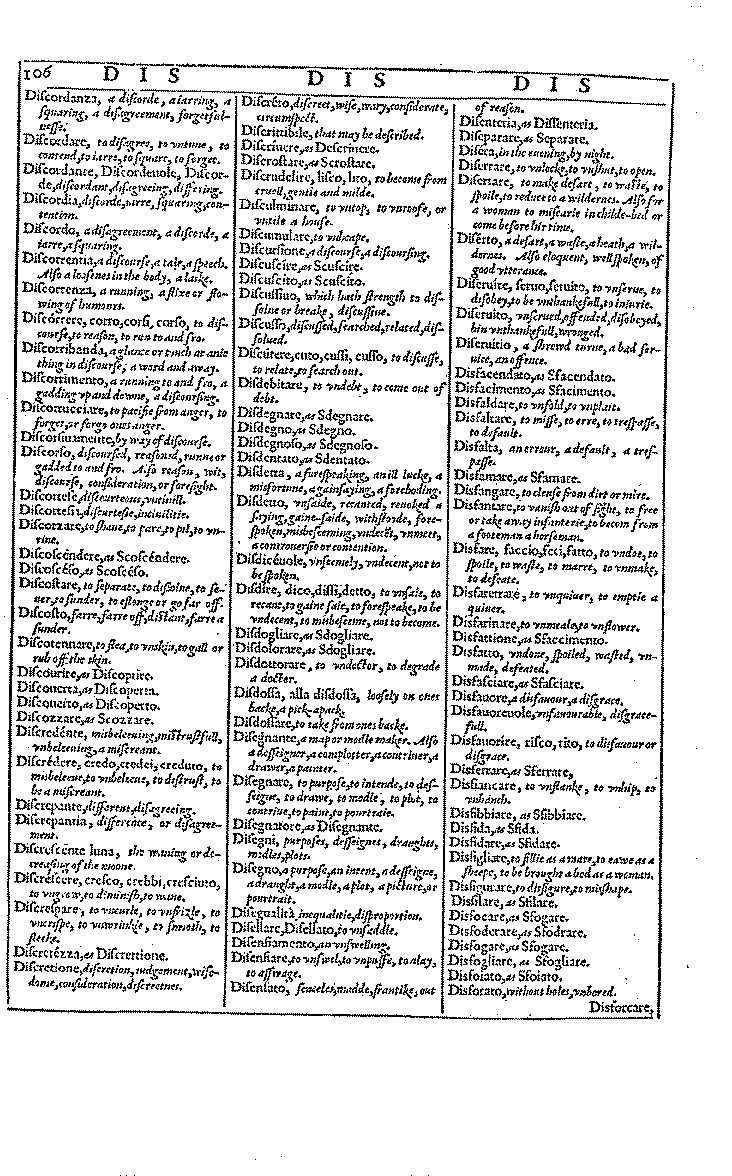 106 D I S D I S D I S
Discordanza, a discorde, a iarring, a
squaring, a disagreement, forgetful-
nesse.
Discordare, to disagree, to vntune, to
contend, to iarre, to square, to forget.
Discordante, Discordeuole, Discor-
de, discordant, disagreeing, differing.
Discordia, discorde, iarre, squaring, con-
tention.
Discordo, a disagreement, a discorde, a
iarre, a squaring.
Discorrentia, a discourse, a tale, a speech.
Also a losenes in the body, a laske.
Discorrenza, a running, a flixe or flo-
wing of humours.
Discórrere, corro, corsi, corso, to dis-
course, to reason, to run to and fro.
Discorribanda, a glance or tuch at anie
thing in discourse, a word and away.
Discorrimento, a running to and fro, a
gadding vp and downe, a discoursing.
Discorrucciare, to pacifie from anger, to
forget, or forgo ones anger.
Discorsiuamente, by way of discourse.
Discorso, discoursed, reasoned, runne or
gadded to and fro. Also reason, wit,
discourse, consideration, or foresight.
Discortese, discourteous, vnciuill.
Discortesia, discourtesie, inciuilitie.
Discorzare, to shale, to pare, to pil, to vn-
rine.
Discoscéndere, as Scoscéndere.
Discoscéso, as Scoscéso.
Discostare, to separate, to disioine, to se-
uer, to sunder, to eslonge or go far off.
Discosto, farre, farre off, distant, farre a
sunder.
Discotennare, to flea, to vnskin, to gall or
rub off the skin.
Discourire, as Discoprire.
Discouerta, as Discoperta.
Discouerto, as Discoperto.
Discozzare, as Scozzare.
Discredénte, misbeleeuing, mistrustfull,
vnbeleeuing, a miscreant.
Discrédere, credo, credei, creduto, to
misbeleeue, to vnbeleeue, to distrust, to
be a miscreant.
Discrepante, different, disagreeing.
Discrepantia, difference, or disagree-
ment.
Discrescénte luna, the waning or de-
creasing of the moone.
Discréscere, cresco, crebbi, cresciuto,
to vngrow, to diminish, to wane.
Discrespare, to vncurle, to vnfrizle, to
vncrispe, to vnwrinkle, to smooth, to
sleeke.
Discretézza, as Discretione.
Discretione, discretion, iudgement, wise-
dome, consideration, discreetnes.
Discréto, discreet, wise, wary, considerate,
circumspect.
Discriuibile, that may be described.
Discriuere, as Descriuere.
Discrostare, as Scrostare.
Discrudelire, lisco, lito, to become from
cruell, gentle and milde.
Disculminare, to vntop, to vnroofe, or
vntile a house.
Discumulare, to vnheape.
Discursione, a discourse, a discoursing.
Discuscire, as Scuscire.
Discuscito, as Scuscito.
Discussiuo, which hath strength to dis-
solue or breake, discussiue.
Discusso, discussed, searched, related, dis-
solued.
Discútere, cuto, cussi, cusso, to discusse,
to relate, to search out.
Disdebitare, to vndebt, to come out of
debt.
Disdegnare, as Sdegnare.
Disdegno, as Sdegno.
Disdegnoso, as Sdegnoso.
Disdentato, as Sdentato.
Disdetta, a forespeaking, an ill lucke, a
misfortune, a gainsaying, a foreboding.
Disdetto, vnsaide, recanted, reuoked a
saying, gaine-saide, withstoode, fore-
spoken, misbeseeming, vndecent, vnmeet,
a controuersie or contention.
Disdicéuole, vnseemely, vndecent, not to
be spoken.
Disdire, dico, dissi, detto, to vnsaie, to
recant, to gaine saie, to forespeake, to be
vndecent, to misbeseeme, not to become.
Disdogliare, as Sdogliare.
Disdolorare, as Sdogliare.
Disdottorare, to vndoctor, to degrade
a doctor.
Disdossa, alla disdossa, loosely on ones
backe, a pick-apack.
Disdossare, to take from ones backe.
Disegnante, a map or modle maker. Also
a desseigner, a complotter, a contriuer, a
drawer, a painter.
Disegnare, to purpose, to intende, to des-
seigne, to drawe, to modle, to plot, to
contriue, to paint, to pourtraie.
Disegnatore, as Disegnante.
Disegni, purposes, desseignes, draughts,
modles, plots.
Disegno, a purpose, an intent, a desseigne,
a draught, a modle, a plot, a picture, or
pourtrait.
Disegualità, inequalitie, disproportion.
Disellare, Disellato, to vnseddle.
Disenfiamento, an vnswelling.
Disenfiare, to vnswel, to vnpuffe, to alay,
to asswage.
Disensato, senceles, madde, frantike, out
of reason.
Disenteria, as Dissenteria.
Diseparare, as Separare.
Diséra, in the euening, by night.
Diserrare, to vnlocke, to vnshut, to open.
Disertare, to make desart, to waste, to
spoile, to reduce to a wildernes. Also for
a woman to miscarie in childe-bed or
come before hir time.
Disérto, a desart, a waste, a heath, a wil-
dernes. Also eloquent, well spoken, of
good vtterance.
Diseruire, seruo, seruito, to vnserue, to
disobey, to be vnthankefull, to iniurie.
Diseruito, vnserued, offended, disobeyed,
bin vnthankefull, wronged.
Diseruitio, a shrewd turne, a bad ser-
uice, an offence.
Disfacendato, as Sfacendato.
Disfacimento, as Sfacimento.
Disfaldare, to vnfold, to vnplait.
Disfaltare, to misse, to erre, to trespasse,
to default.
Disfalta, an errour, a default, a tres-
passe.
Disfamare, as Sfamare.
Disfangare, to clense from dirt or mire.
Disfantare, to vanish out of sight, to free
or take away infanterie, to becom from
a footeman a horseman.
Disfare, faccio, feci, fatto, to vndoe, to
spoile, to waste, to marre, to vnmake,
to defeate.
Disfaretrare, to vnquiuer, to emptie a
quiuer.
Disfarinare, to vnmeale, to vnflower.
Disfattione, as Sfaccimento.
Disfatto, vndone, spoiled, wasted, vn-
made, defeated.
Disfasciare, as Sfasciare.
Disfauore, a disfauour, a disgrace.
Disfauoreuole, vnfauourable, disgrace-
full.
Disfauorire, risco, rito, to disfauour or
disgrace.
Disferrare, as Sferrate,
Disfiancare, to vnflanke, to vnhip, to
vnhanch.
Disfibbiare, as Sfibbiare.
Disfida, as Sfida.
Disfidare, as Sfidare.
Disfigliare, to fillie as a mare, to eawe as a
sheepe, to be brought a bed as a woman.
Disfigurare, to disfigure, to misshape.
Disfilare, as Sfilare.
Disfocare, as Sfogare.
Disfoderare, as Sfodrare.
Disfogare, as Sfogare.
Disfogliare, as Sfogliare.
Disfoiato, as Sfoiato.
Disforato, without holes, vnbored.
Disforcare,